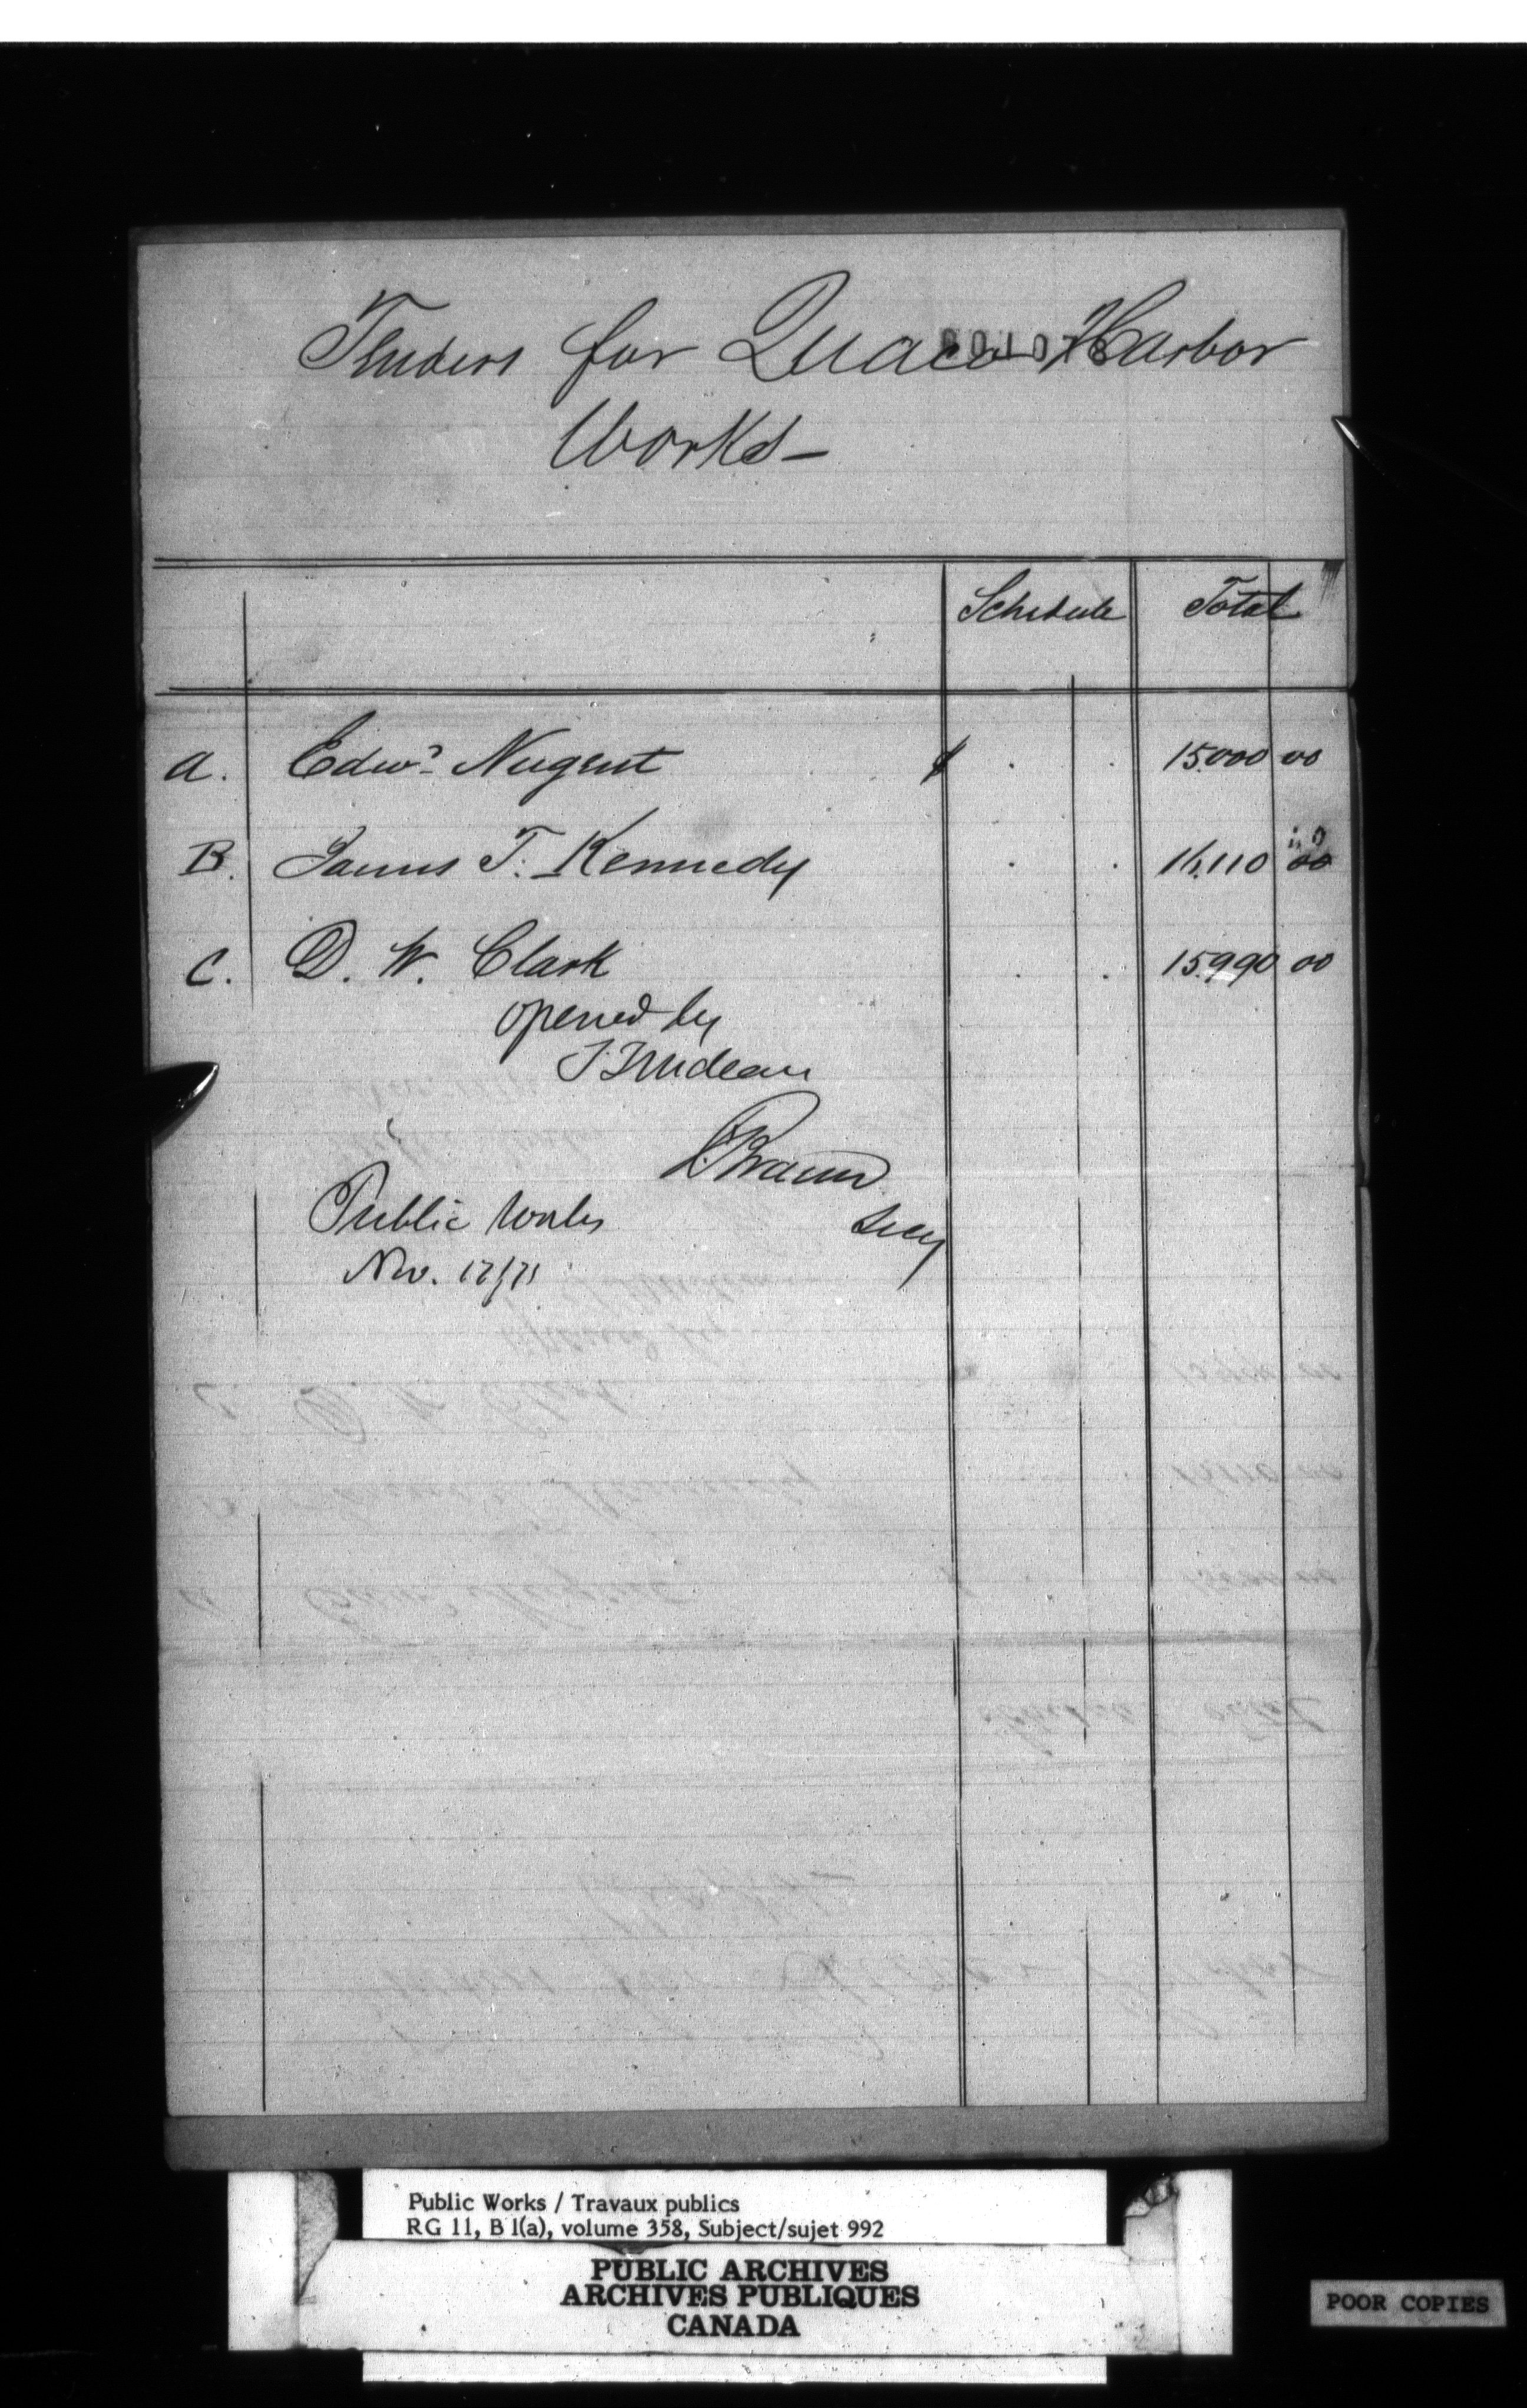 Tenders for Quaco Harbor
Works —
Schedule Total
A. Edwd. Nugent $ . . 15.000 00
B. James T. Kennedy . . 16.110 00
C. D. W. Clark . . 15.990 00
opened by
T Trudeau
F Braun
Secy
Public Works
Nov. 17/71
Public Works / Travaux publics
RG 11, B 1(a), volume 358, Subject/sujet 992
PUBLIC ARCHIVES
ARCHIVES PUBLIQUES
CANADA
POOR COPIES